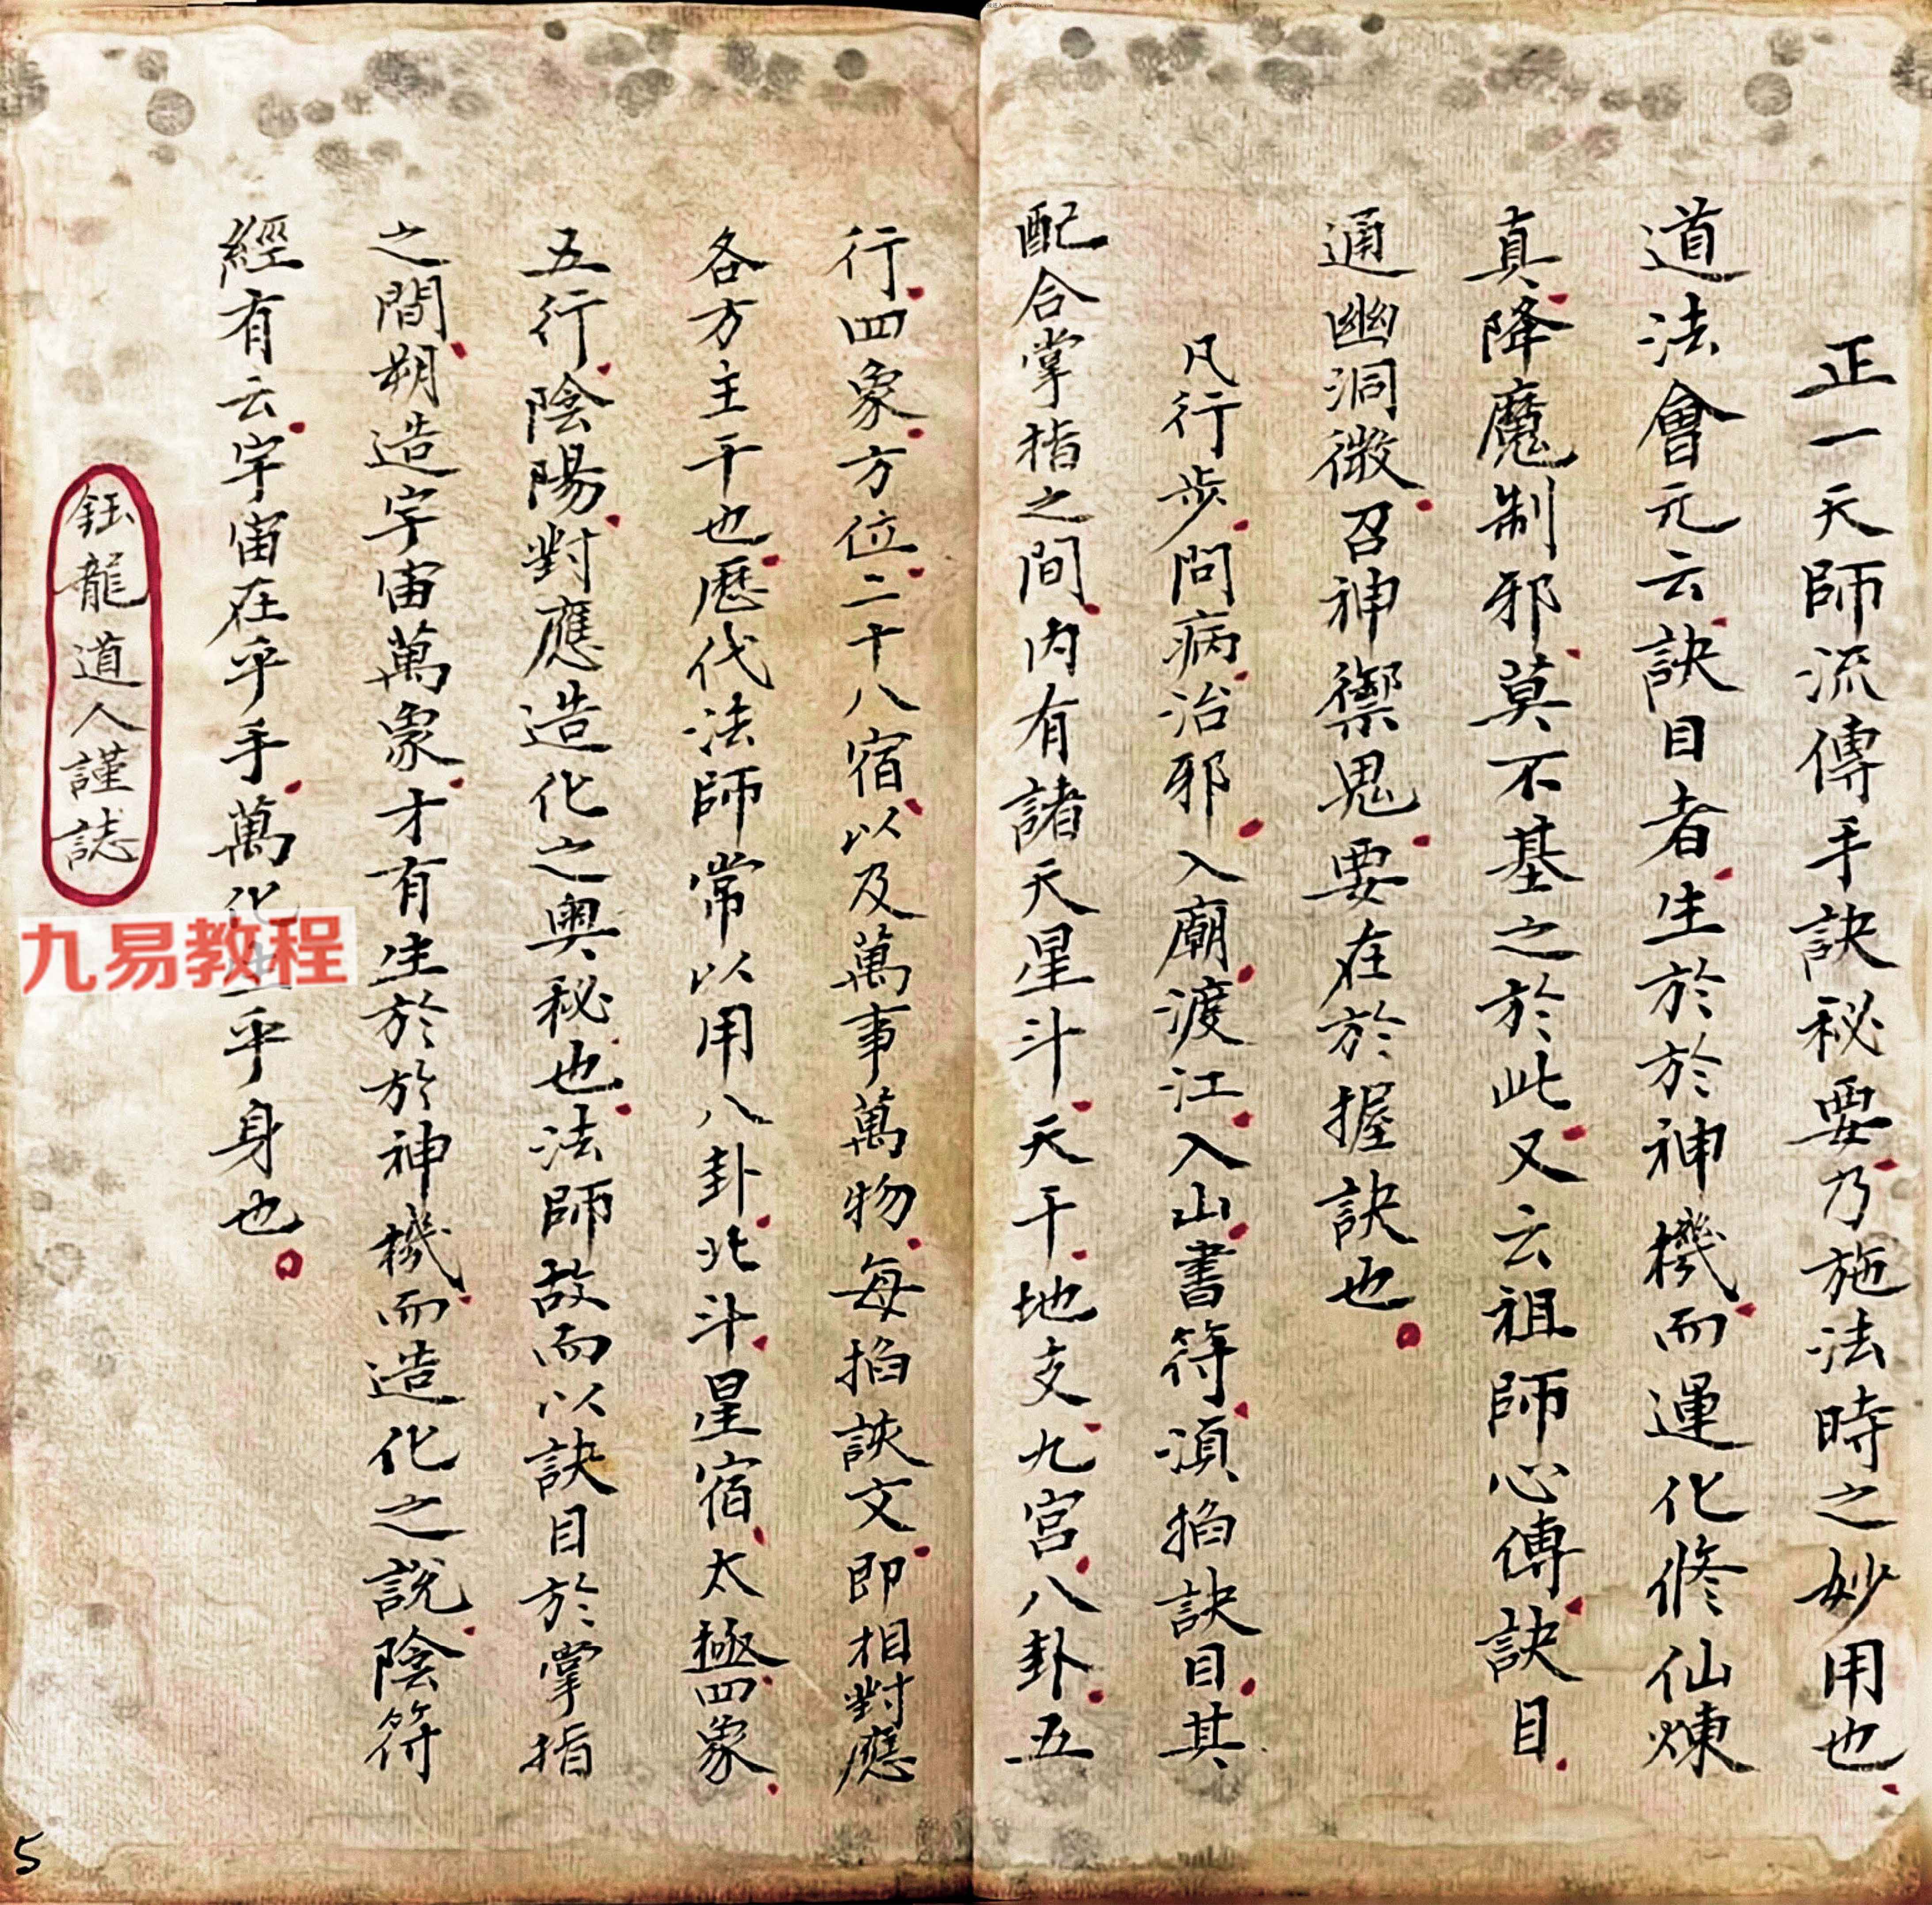 正一天師流傳手訣秘要乃施法時之妙用也
道法會元云訣目者生於於神機而運化修仙煉
真降魔制邪莫不基之於此又云祖師心傳訣目
通幽洞微召神禦鬼要在於握訣也
凡行步問病治邪入廟渡江入山書符須掐訣目其
配合掌指之间内有諸天星斗天干地支九宮八卦五
行四象方位二十八宿以及萬事萬物每掐訣文即相對應
各方主干也歷代法師常以用八卦北斗星宿太極四象
五行陰陽對應造化之奥秘也法師故而以訣目於掌指
之間朔造宇宙萬象才有生於於神機而造化之說陰符
經有云宇宙在乎手萬化生乎身也
鈺龍道人謹誌
九易教程
5